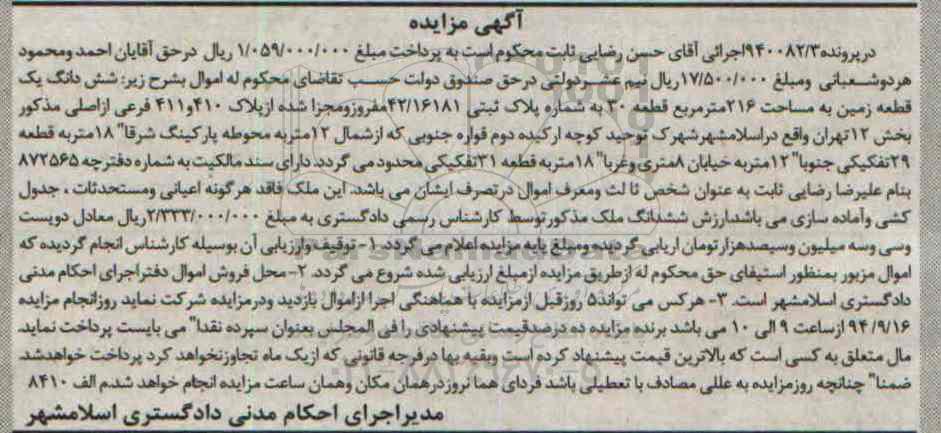 آگهی مزایده
درپرونده۹۴۰۰۸۲/۳اجرائی آقای حسن رضایی ثابت محکوم است به پرداخت مبلغ ۱/۰۵۹/۰۰۰/۰۰۰ ریال درحق آقایان احمد ومحمود
هردوشعبانی ومبلغ ۱۷/۵۰۰/۰۰۰ریال نیم عشر دولتی درحق صندوق دولت حسب تقاضای محکوم له اموال بشرح زیر: شش دانگ یک
قطعه زمین به مساحت ۲۱۶مترمربع قطعه ۳۰ به شماره پلاک ثبتی ۴۲/۱۶۱۸۱مفروزومجزا شده ازپلاک ۴۱۰و۴۱۱ فرعی ازاصلی مذکور
بخش ۱۲تهران واقع دراسلامشهرشهرک توحید کوچه ارکیده دوم قواره جنوبی که ازشمال ۱۲متربه محوطه پارکینگ شرقا" ۱۸متربه قطعه
۲۹تفکیکی جنوبا" ۱۲متربه خیابان ۸متری وغربا" ۱۸متربه قطعه ۳۱تفکیکی محدودمی گردد. دارای سند مالکیت به شماره دفترچه ۸۷۲۵۶۵
بنام علیرضا رضایی ثابت به عنوان شخص ثا لث ومعرف اموال درتصرف ایشان می باشد. این ملک فاقد هرگونه اعیانی ومستحدثات ، جدول
کشی وآماده سازی می باشدارزش ششدانگ ملک مذکورتوسط کارشناس رسمی دادگستری به مبلغ ۲/۳۳۳/۰۰۰/۰۰۰ریال معادل دویست
وسی وسه میلیون وسیصدهزارتومان اریابی گردیده ومبلغ پایه مزایده اعلام می گردد. ۱- توقیف وارزیابی آن بوسیله کارشناس انجام گردیده که
اموال مزبور بمنظور استیفای حق محکوم له ازطریق مزایده ازمبلغ ارزیابی شده شروع می گردد. ۲- محل فروش اموال دفتراجرای احکام مدنی
دادگستری اسلامشهر است. ۳- هرکس می تواند۵ روزقبل ازمزایده با هماهنگی اجرا ازاموال بازدید ودرمزایده شرکت نماید روزانجام مزایده
۹۴/۹/۱۶ ازساعت ۹ الی ۱۰ می باشد برنده مزایده ده درصدقیمت پیشنهادی را فی المجلس بعنوان سپرده نقدا" می بایست پرداخت نماید.
مال متعلق به کسی است که بالاترین قیمت پیشنهاد کرده است وبقیه بها درفرجه قانونی که ازیک ماه تجاوزنخواهد کرد پرداخت خواهدشد.
ضمنا" چنانچه روزمزایده به عللی مصادف با تعطیلی باشد فردای هما نروزدرهمان مکان وهمان ساعت مزایده انجام خواهد شد.م الف ۸۴۱۰
مدیراجرای احکام مدنی دادگستری اسلامشهر